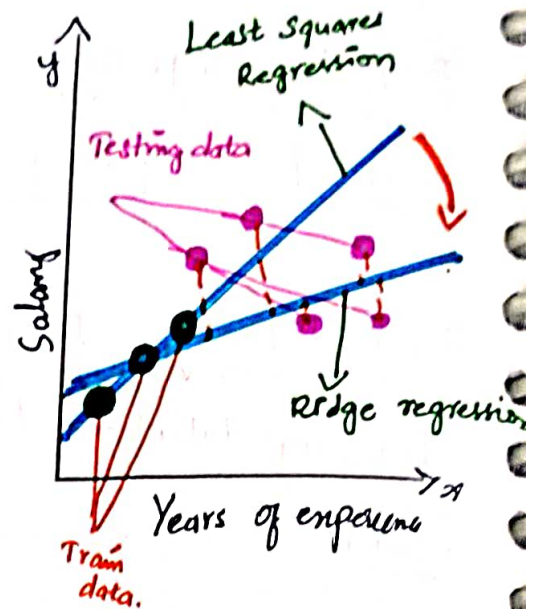 y
Least Squares
Regression
Testing data
Salary
Ridge regression
x
Years of experience
Train
data.